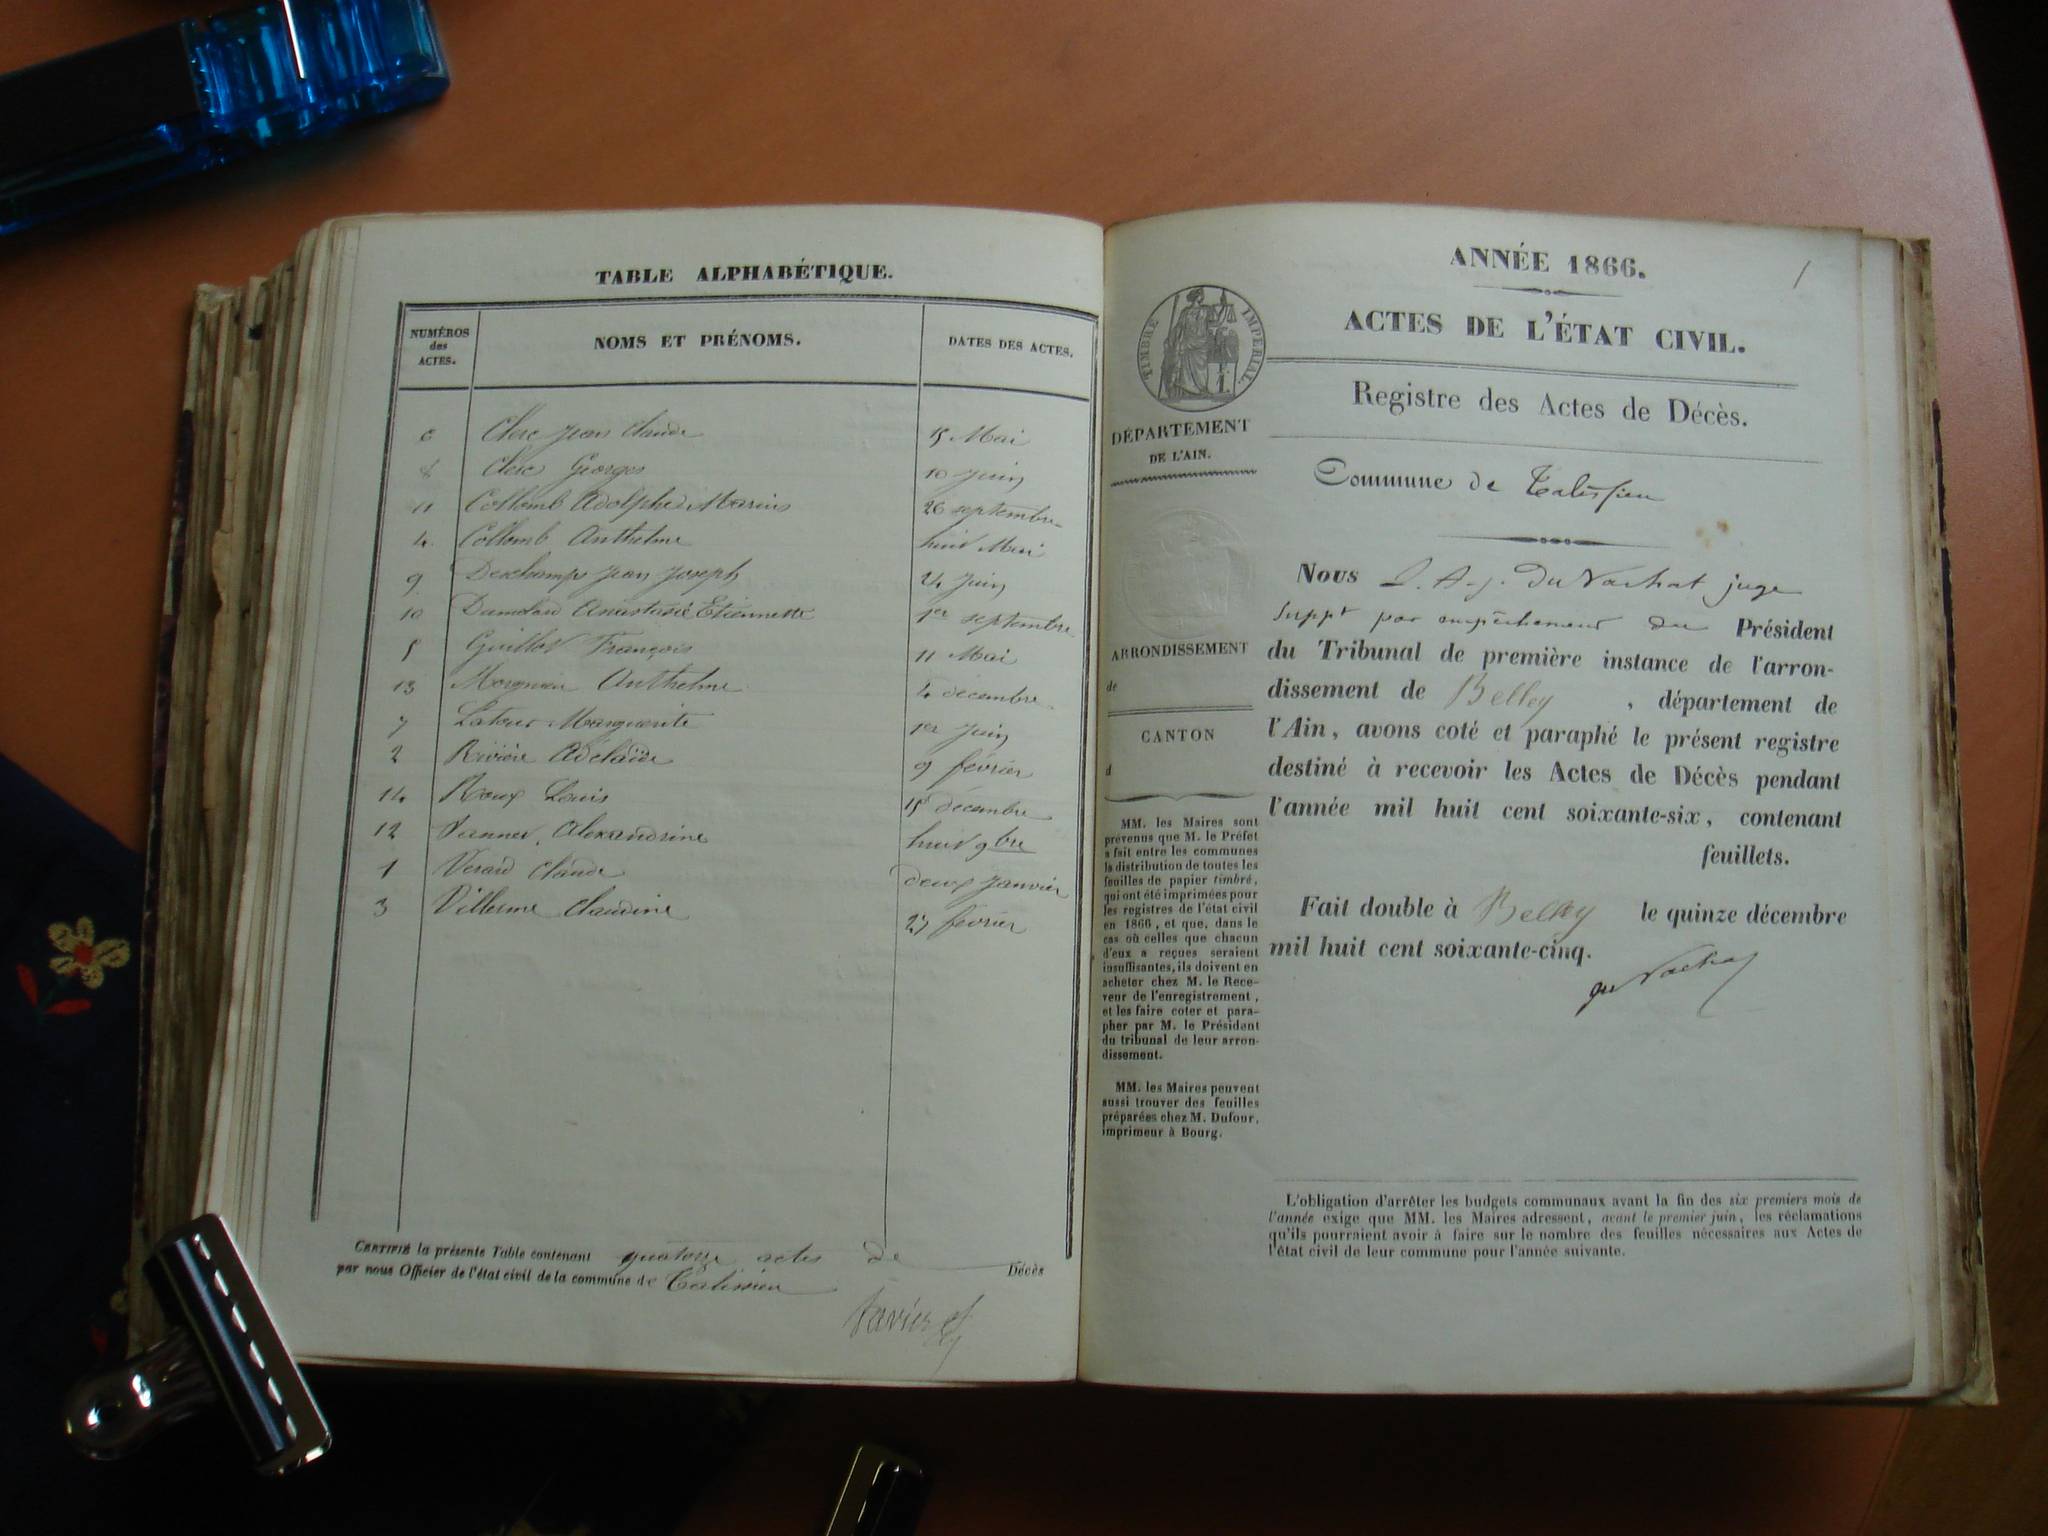 TABLE ALPHABÉTIQUE.
NUMÉROS
des
ACTES.
NOMS ET PRÉNOMS.
DATES DES ACTES.
6 Clerc Jean Claude 15 Mai
8 Clerc Georges 10 Juin
11 Collomb Adolphe Marius 26 septembre
4 Collomb Anthelme huit Mai
9 Deschamps Jean Joseph 24 Juin
10 Anastasie Etiennette 1er septembre
5 Guillot François 11 Mai
13 Anthelme 4 décembre
7 Latour Marguerite 1er Juin
2 Rivière Adelaïde 9 février
14 Roux Louis 15 décembre
12 Alexandrine huit 9bre
1 Verard Claude deux Janvier
3 Villerme Claudine 27 février
CERTIFIÉ la présente Table contenant quatorze actes de Décès
par nous Officier de l'état civil de la commune de Talissieu
ANNÉE 1866.
1
ACTES DE L'ÉTAT CIVIL.
TIMBRE IMPÉRIAL.
Registre des Actes de Décès.
DÉPARTEMENT
DE L'AIN.
Commune de Talissieu
ARRONDISSEMENT
de
CANTON
d
MM. les Maires sont
prévenus que M. le Préfet
a fait entre les communes
la distribution de toutes les
feuilles de papier timbré,
qui ont été imprimées pour
les registres de l'état civil
en 1866, et que, dans le
cas où celles que chacun
d'eux a reçues seraient
insuffisantes, ils doivent en
acheter chez M. le Rece-
veur de l'enregistrement,
et les faire coter et para-
pher par M. le Président
du tribunal de leur arron-
dissement.
MM. les Maires peuvent
aussi trouver des feuilles
préparées chez M. Dufour,
imprimeur à Bourg.
Nous Du Vachat juge
suppt par empêchement du Président
du Tribunal de première instance de l'arron-
dissement de Belley , département de
l'Ain, avons coté et paraphé le présent registre
destiné à recevoir les Actes de Décès pendant
l'année mil huit cent soixante-six, contenant
feuillets.
Fait double à Belley le quinze décembre
mil huit cent soixante-cinq.
du Vachat
L'obligation d'arrêter les budgets communaux avant la fin des six premiers mois de
l'année exige que MM. les Maires adressent, avant le premier juin, les réclamations
qu'ils pourraient avoir à faire sur le nombre des feuilles nécessaires aux Actes de
l'état civil de leur commune pour l'année suivante.